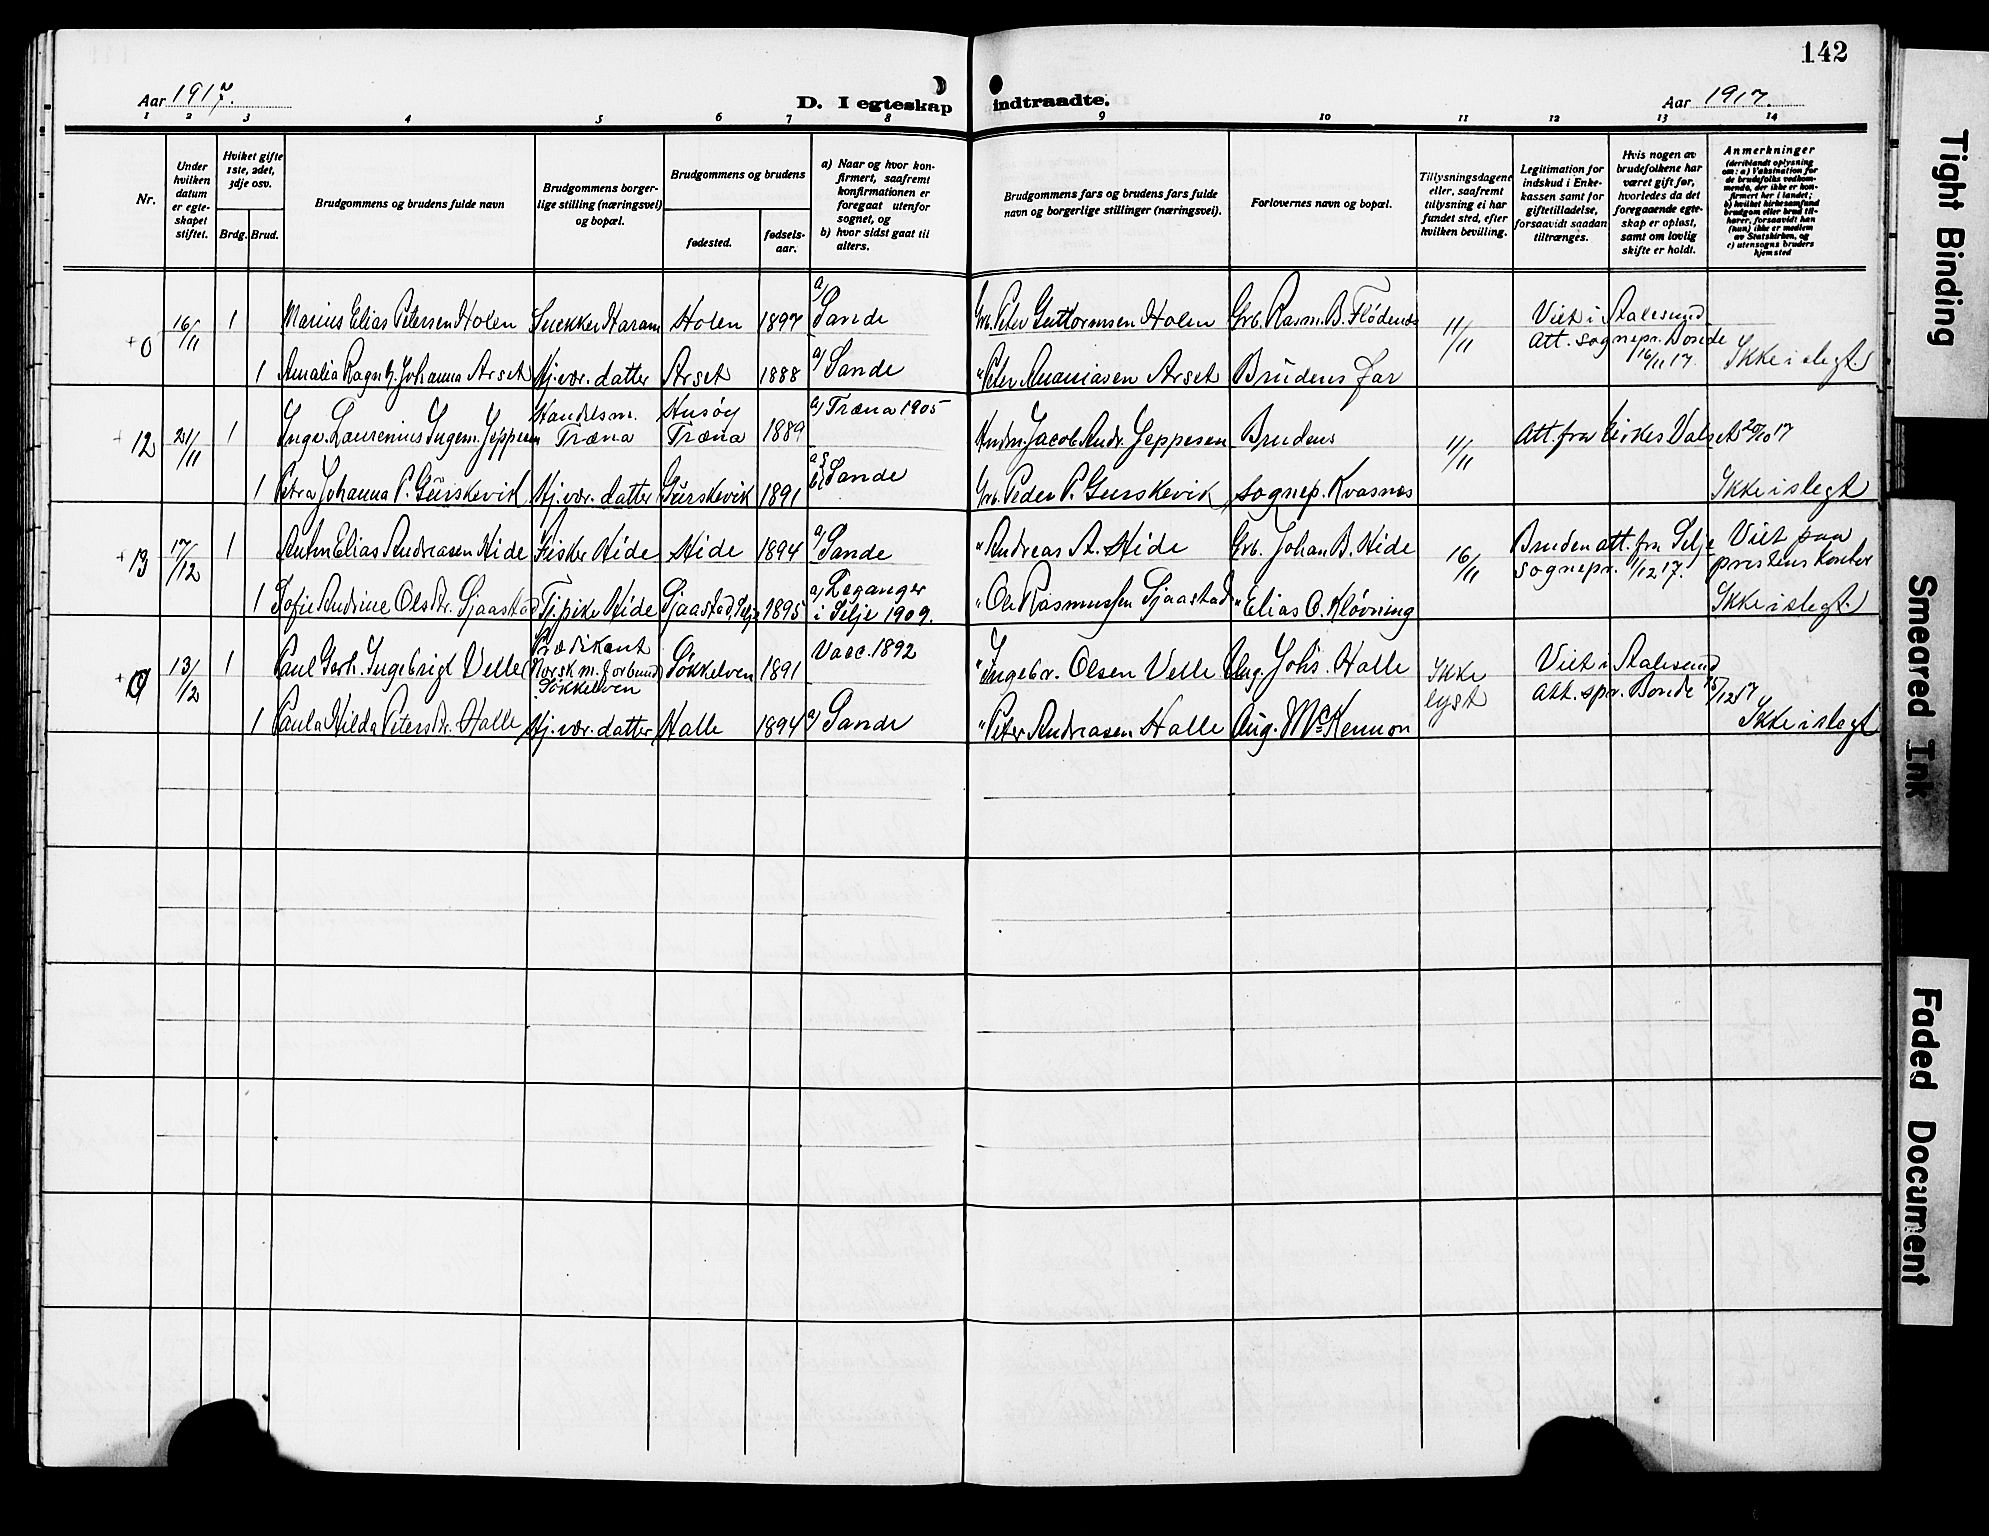 142
Aar 1917.
D. I egteskap indtraadte.
Aar 1917.
1 2 3 4 5 6 7 8 9 10 11 12 13 14
Nr.
Under hvilken datum er egteskapet stiftet.
Hviket gifte 1ste, 2det, 3dje osv.
Brdg. Brud.
Brudgommens og brudens fulde navn
Brudgommens borgerlige stilling (næringsvei) og bopæl.
Brudgommens og brudens
fødested.
fødselsaar.
a) Naar og hvor konfirmert, saafremt konfirmationen er foregaat utenfor sognet, og
b) hvor sidst gaat til alters.
Brudgommens fars og brudens fars fulde navn og borgerlige stillinger (næringsvei).
Forlovernes navn og bopæl.
Tillysningsdagene eller, saafremt tillysning ei har fundet sted, efter hvilken bevilling.
Legitimation for indskud i Enkekassen samt for giftetilladelse, forsaavidt saadan tiltrænges.
Hvis nogen av brudefolkene har været gift før, hvorledes da det foregaaende egteskap er opløst, samt om lovlig skifte er holdt.
Anmerkninger
(deriblandt oplysning om: a) Vaksination for de brudefolks vedkommende, der ikke er konfirmert her i landet; b) hvilket kirkesamfund brudgom eller brud tilhører, forsaavidt han (hun) ikke er medlem av Statskirken, og c) utensogns bruders hjemsted
+0 16/11 1 Marius Elias Petersen Holen Snekker Haram Holen 1897 a) Sande Grb. Peter Guttormsen Holen Grb. Rasm. B. Flødenæs 11/11 Viet i Aalesund
Att. sognepr. Bonde 16/11 17.
1 Amalia Ragnh. Johanna Arset Hj.vær. datter Arset 1888 a) Sande " Peter Ananiasen Arset Brudens far Ikke i slegt.
+ 12 21/11 1 Inge. Laurenius Ingem. Jeppesen Handelsm. Træna Husøy Træna 1889 a) Træna 1905 Hndm. Jacob Andr. Jeppesen Brudens 11/11 Att. fra Kirkes Valset 29/10 17
1 Petra Johanna P. Gurskevik Hj.vær. datter Gurskevik 1891 a) b) Sande Grb. Peder P. Gurskevik sognep. Kvasnes Ikke i slegt
+ 13 17/12 1 Anton Elias Andreasen Hide Fisker Hide Hide 1894 a) Sande " Andreas A. Hide Grb. Johan B. Hide 16/11 Bruden att. fra Selje sognepr. 1/12 17. Viet paa prestens kontor
1 Sofie Andrine Olsdr. Sjaastad Tj.pike Hide Sjaastad, Selje 1895 a) Leganger i Selje 1909. " Ole Rasmussen Sjaastad " Elias O. Kløvning Ikke i slegt.
+ 0 13/12 1 Paul Gerh. Ingebrigt Velle Prædikant Norsk m. forbund Søkkelven Søkkelven 1891 Vacc. 1892 " Ingebr. Olsen Velle Ung. Johs. Halle Ikke lyst Viet i Aalesund
Att. spr. Bonde 15/12 17
1 Paula Hilda Petersdr. Halle Hj.vær. datter Halle 1894 a) Sande " Peter Andreasen Halle Aug. McKennon Ikke i slegt
Tight Binding
Smeared Ink
Faded Document